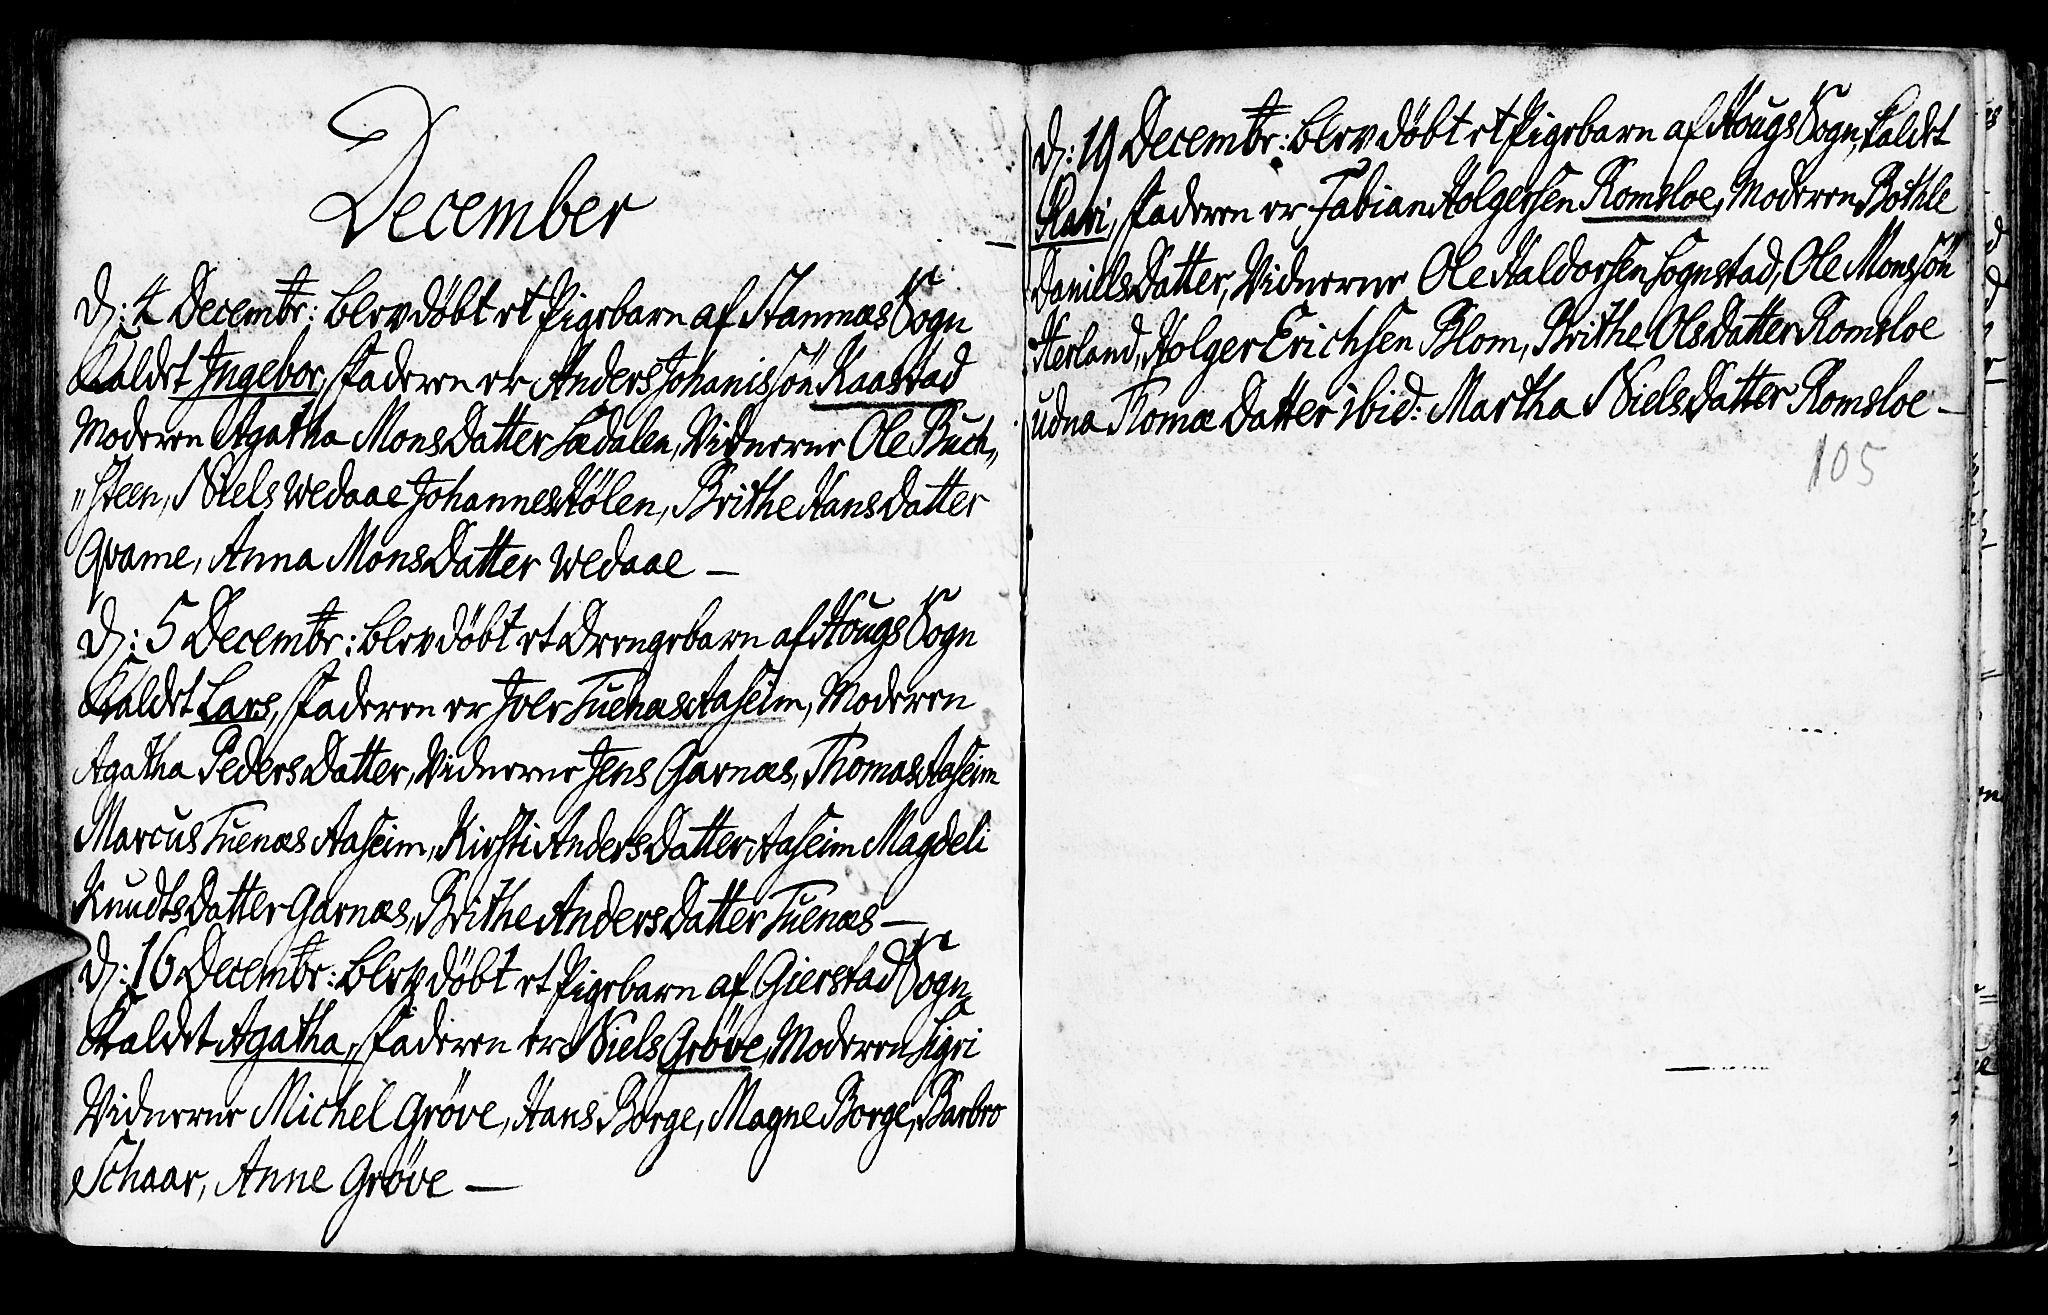 December
D: 4 Decembr: blev döbt et Pigebarn af Stamnæs Sogn
Kaldet Ingebor, Faderen er Anders Johanissön Kaastad
Moderen Agatha Mons Datter Lædalen, Vidnerne Ole Buch„
„steen, Niels Wedaae Johannes Hölen, Brithe Hans Datter
Qvame, Anna Mons Datter Wedaae —
D: 5 Decembr: blev döbt et Drengebarn af Hougs Sogn
Kaldet Lars, Faderen er Joen Tuenæs Aaseim, Moderen
Agatha Peders Datter, Vidnerne Jens Garnæs, Thomas Aaseim
Marcus Tuenæs Aaseim, Kirsti Anders Datter Aaseim Magdeli
Knudts Datter Garnæs, Brithe Anders Datter Tuenæs —
D: 16 Decembr: blev döbt et Pigebarn af Gierstad Sogn
Kaldet Agatha, Faderen er Niels Gröve, Moderen Sigri
Vidnerne Michel Gröve, Hans Borge, Magne Borge, Barbro
Schaar, Anne Gröve —
D: 19 Decembr: blev döbt et Pigebarn af Hougs Sogn, kaldet
Kari, Faderen er Fabian Holgersen Romsloe, Moderen Bothle
Daniels Datter, Vidnerne Ole Haldorsen Sognstad, Ole Monssön
Herland, Holger Erichsen Blom, Brithe Ols Datter Romsloe
udna Tomæ Datter ibid: Martha Niels Datter Romsloe —
105